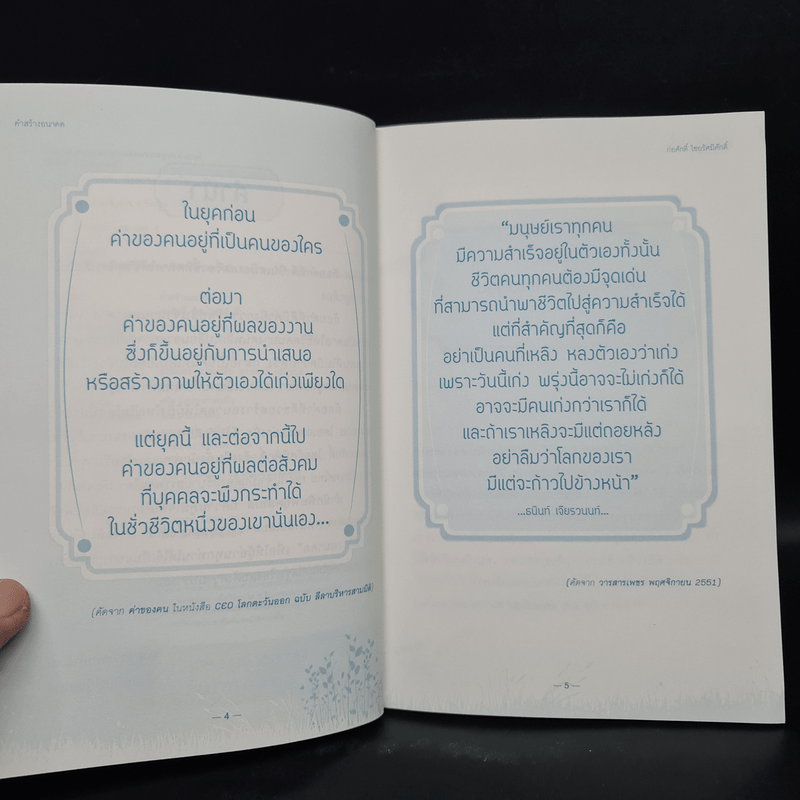 คำสร้างอนาคต
ในยุคก่อน
ค่าของคนอยู่ที่เป็นคนของใคร
ต่อมา
ค่าของคนอยู่ที่ผลของงาน
ซึ่งก็ขึ้นอยู่กับการนำเสนอ
หรือสร้างภาพให้ตัวเองได้เก่งเพียงใด
แต่ยุคนี้ และต่อจากนี้ไป
ค่าของคนอยู่ที่ผลต่อสังคม
ที่บุคคลจะพึงกระทำได้
ในชั่วชีวิตหนึ่งของเขานั่นเอง...
(คัดจาก ค่าของคน ในหนังสือ CEO โลกตะวันออก ฉบับ ลีลาบริหารสามมิติ)
— 4 —
ก่อศักดิ์ ไชยรัศมีศักดิ์
“มนุษย์เราทุกคน
มีความสำเร็จอยู่ในตัวเองทั้งนั้น
ชีวิตคนทุกคนต้องมีจุดเด่น
ที่สามารถนำพาชีวิตไปสู่ความสำเร็จได้
แต่ที่สำคัญที่สุดก็คือ
อย่าเป็นคนที่เหลิง หลงตัวเองว่าเก่ง
เพราะวันนี้เก่ง พรุ่งนี้อาจจะไม่เก่งก็ได้
อาจจะมีคนเก่งกว่าเราก็ได้
และถ้าเราเหลิงจะมีแต่ถอยหลัง
อย่าลืมว่าโลกของเรา
มีแต่จะก้าวไปข้างหน้า”
...ธนินท์ เจียรวนนท์...
(คัดจาก วารสารเพชร พฤศจิกายน 2551)
— 5 —